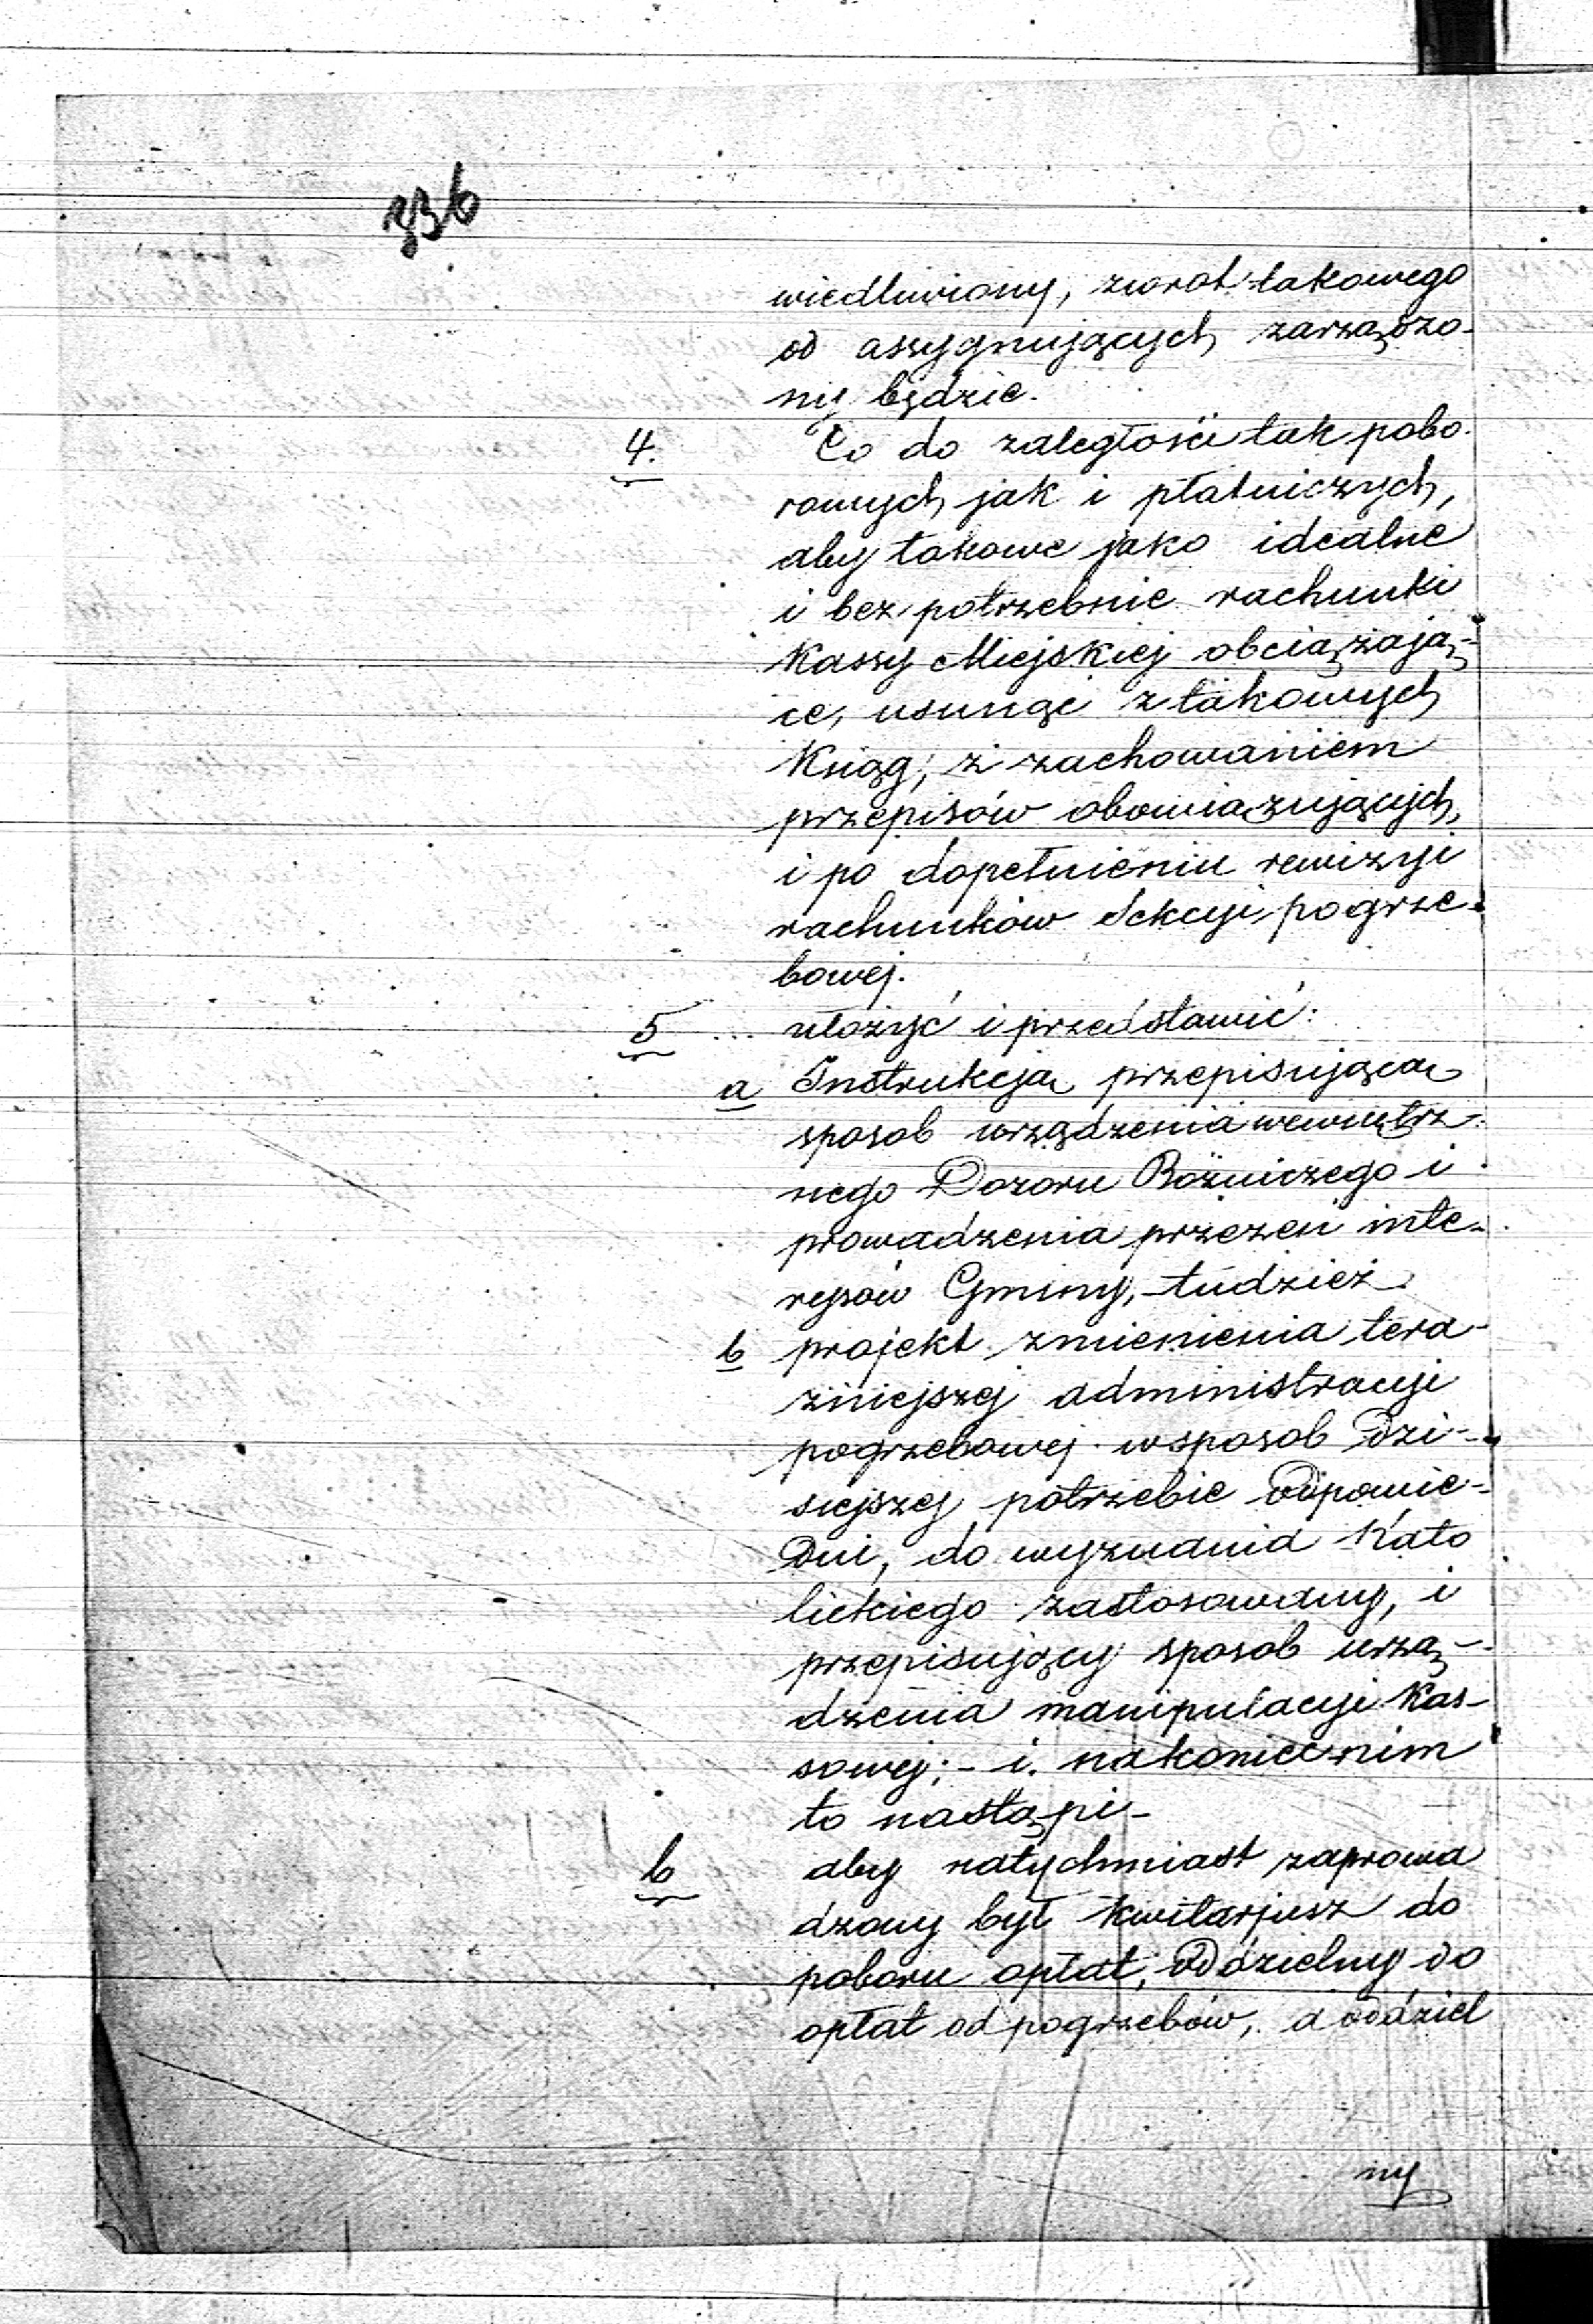 336
wiedliwiony, zwrot takowego
od assygnujących zarządzo-
ny będzie.
4. Co do zaległości tak pobo-
rowych jak i płatniczych,
aby takowe jako idealne
i bezpotrzebnie rachunki
Kassy Miejskiej obciążają-
ce, usunąć z takowych
Ksiąg, z zachowaniem
przepisów obowiązujących,
i po dopełnieniu rewizyi
rachunków Sekcyi pogrze-
bowej.
5 ... ułożyć i przedstawić:
a Instrukcja przepisująca
sposob urządzenia wewnętrz-
nego Dozoru Bóżniczego i
prowadzenia przezeń inte-
resów Gminy, - tudzież
b projekt zmienienia tera-
źniejszej administracyi
pogrzebowej w sposob dzi-
siejszej potrzebie odpowie-
dni, do wyznania Kato
lickiego zastosowany, i
przepisujący sposob urzą-
dzenia manipulacyi Kas-
sowej; - i. nakoniec nim
to nastąpi -
6 aby natychmiast zaprowa
dzony był kwitarjusz do
poboru opłat, oddzielny do
opłat od pogrzebów, a oddziel
ny